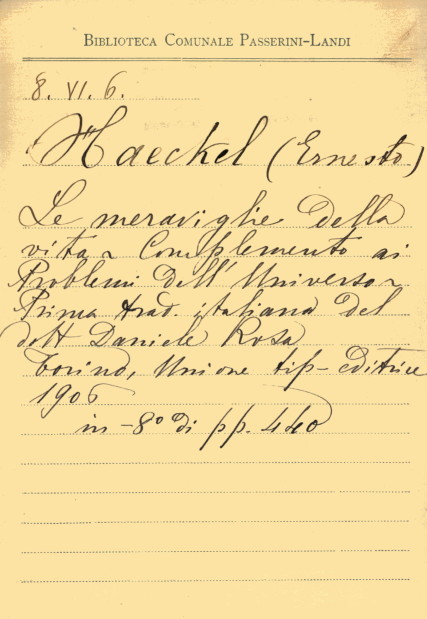 BIBLIOTECA COMUNALE PASSERINI-LANDI
8. VI. 6.
Haeckel (Ernesto)
Le meraviglie della
vita - Complemento ai
Problemi dell'Universo -
Prima trad. italiana del
dott Daniele Rosa
Torino, Unione tip-editrice
1906
in-8º di pp. 440